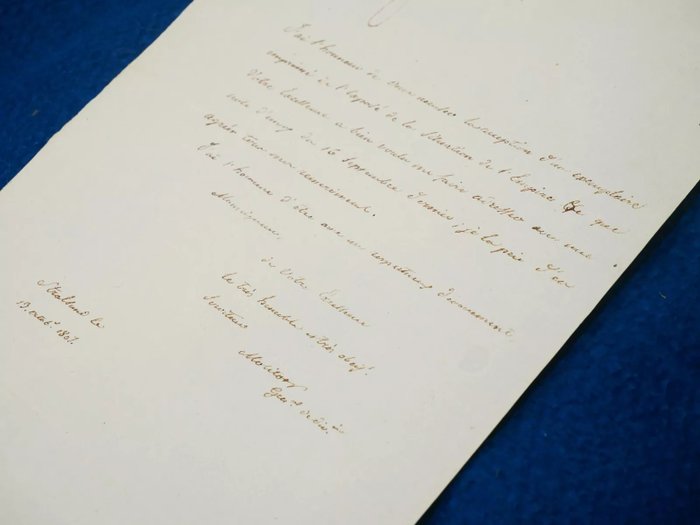 J'ai l'honneur de vous accuser la réception d'un exemplaire
imprimé de l'Exposé de la Situation de l'Empire que
Votre Excellence a bien voulu me faire adresser avec une
note d'envoy du 16 Septembre dernier; je la prie d'en
agréer tous mes remerciements.
J'ai l'honneur d'être avec un respectueux dévouement
Monseigneur,
de Votre Excellence
le très humble et très obeist.
Serviteur
Stralsund le
19. octobre. 1807.